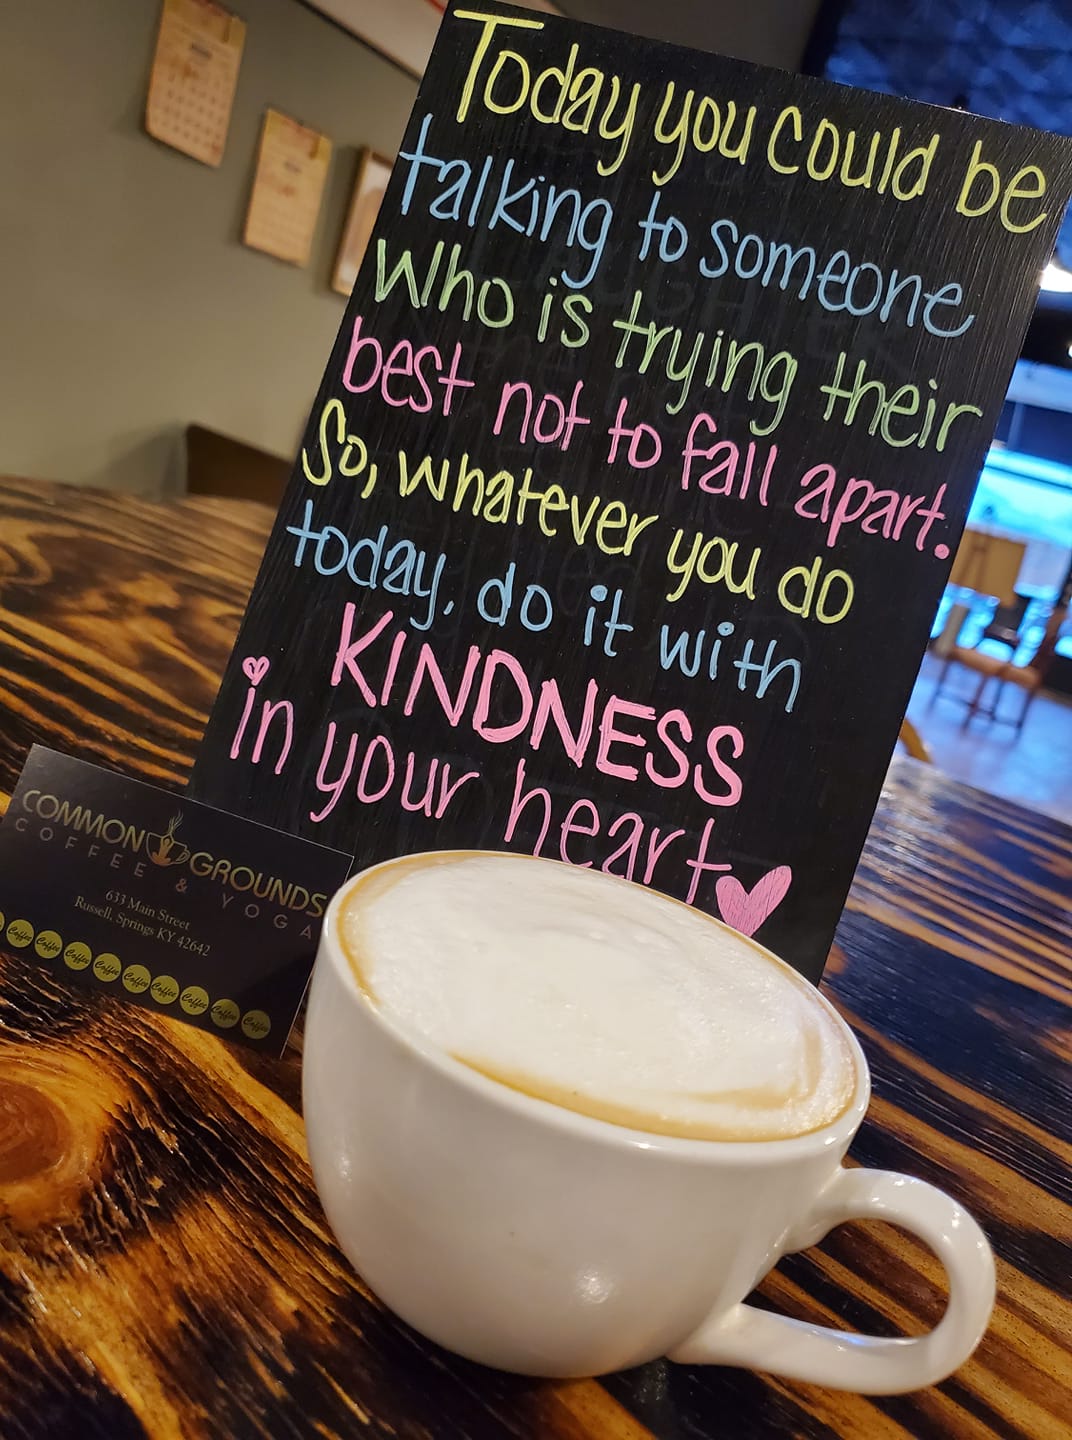 Today you could be
talking to someone
who is trying their
best not to fall apart.
So, whatever you do
today, do it with
KINDNESS
in your heart
COMMON GROUNDS
COFFEE & YOGA
633 Main Street
Russell Springs KY 42642
Coffee Coffee Coffee Coffee Coffee Coffee Coffee Coffee Coffee